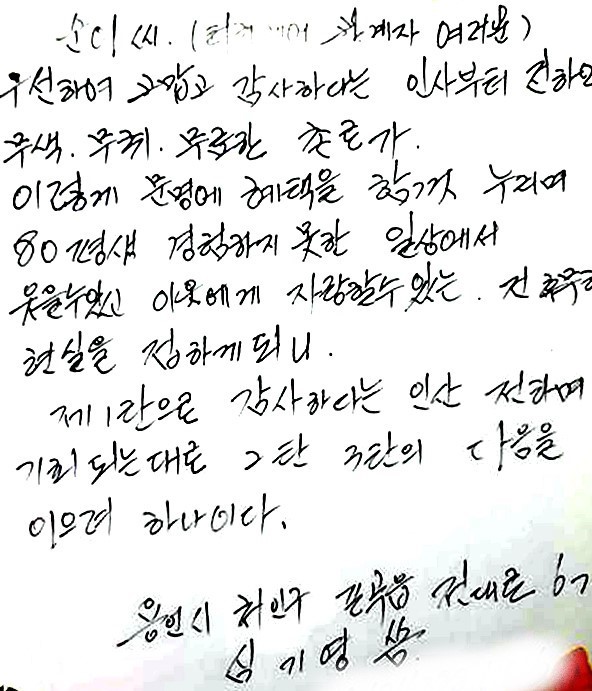 순이 씨. ( 관계자 여러분)
우선하여 고맙고 감사하다는 인사부터 전하며
무색. 무취. 무료한 촌로가.
이렇게 문명에 혜택을 힘껏 누리며
80평생 경험하지 못한 일상에서
웃을수있고 이웃에게 자랑할수 있는. 전후무
현실을 접하게 되니.
제1탄으로 감사하다는 인산 전하며
기회 되는대로 2탄 3탄의 다음을
이으려 하나이다.
용인시 처인구 포곡읍 전대로 67
심기영